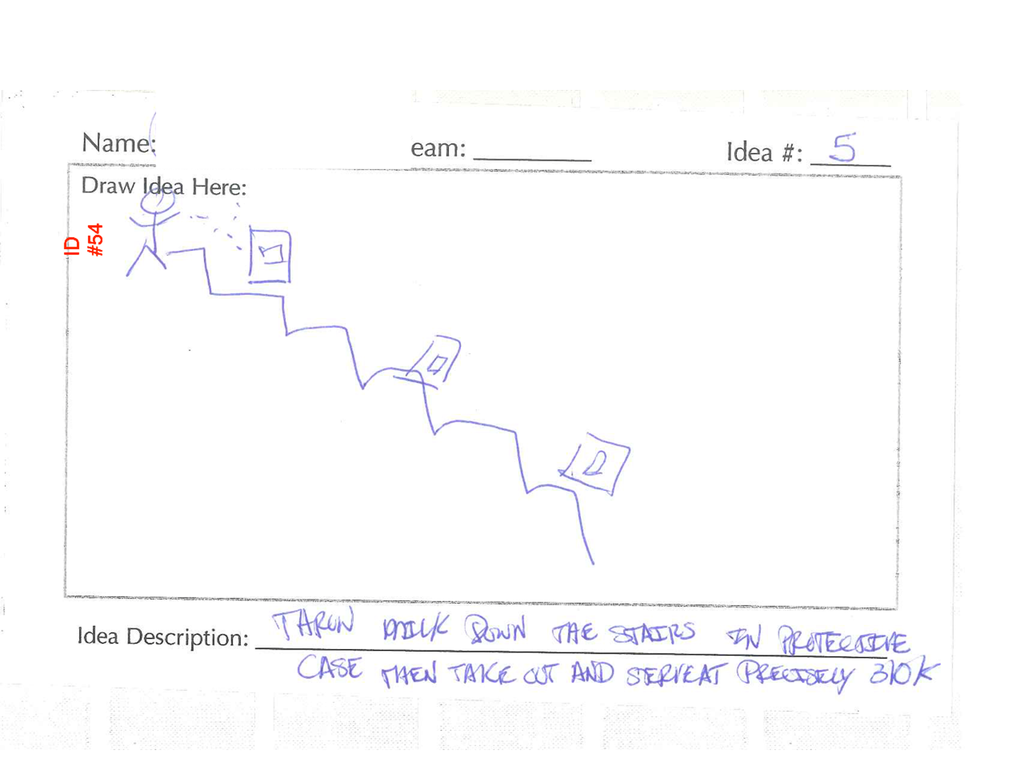 Name:
eam:
Idea #: 5
Draw Idea Here:
ID
#54
Idea Description: THROW MILK DOWN THE STAIRS IN PROTECTIVE
CASE THEN TAKE OUT AND SERVE AT PRECISELY 310K